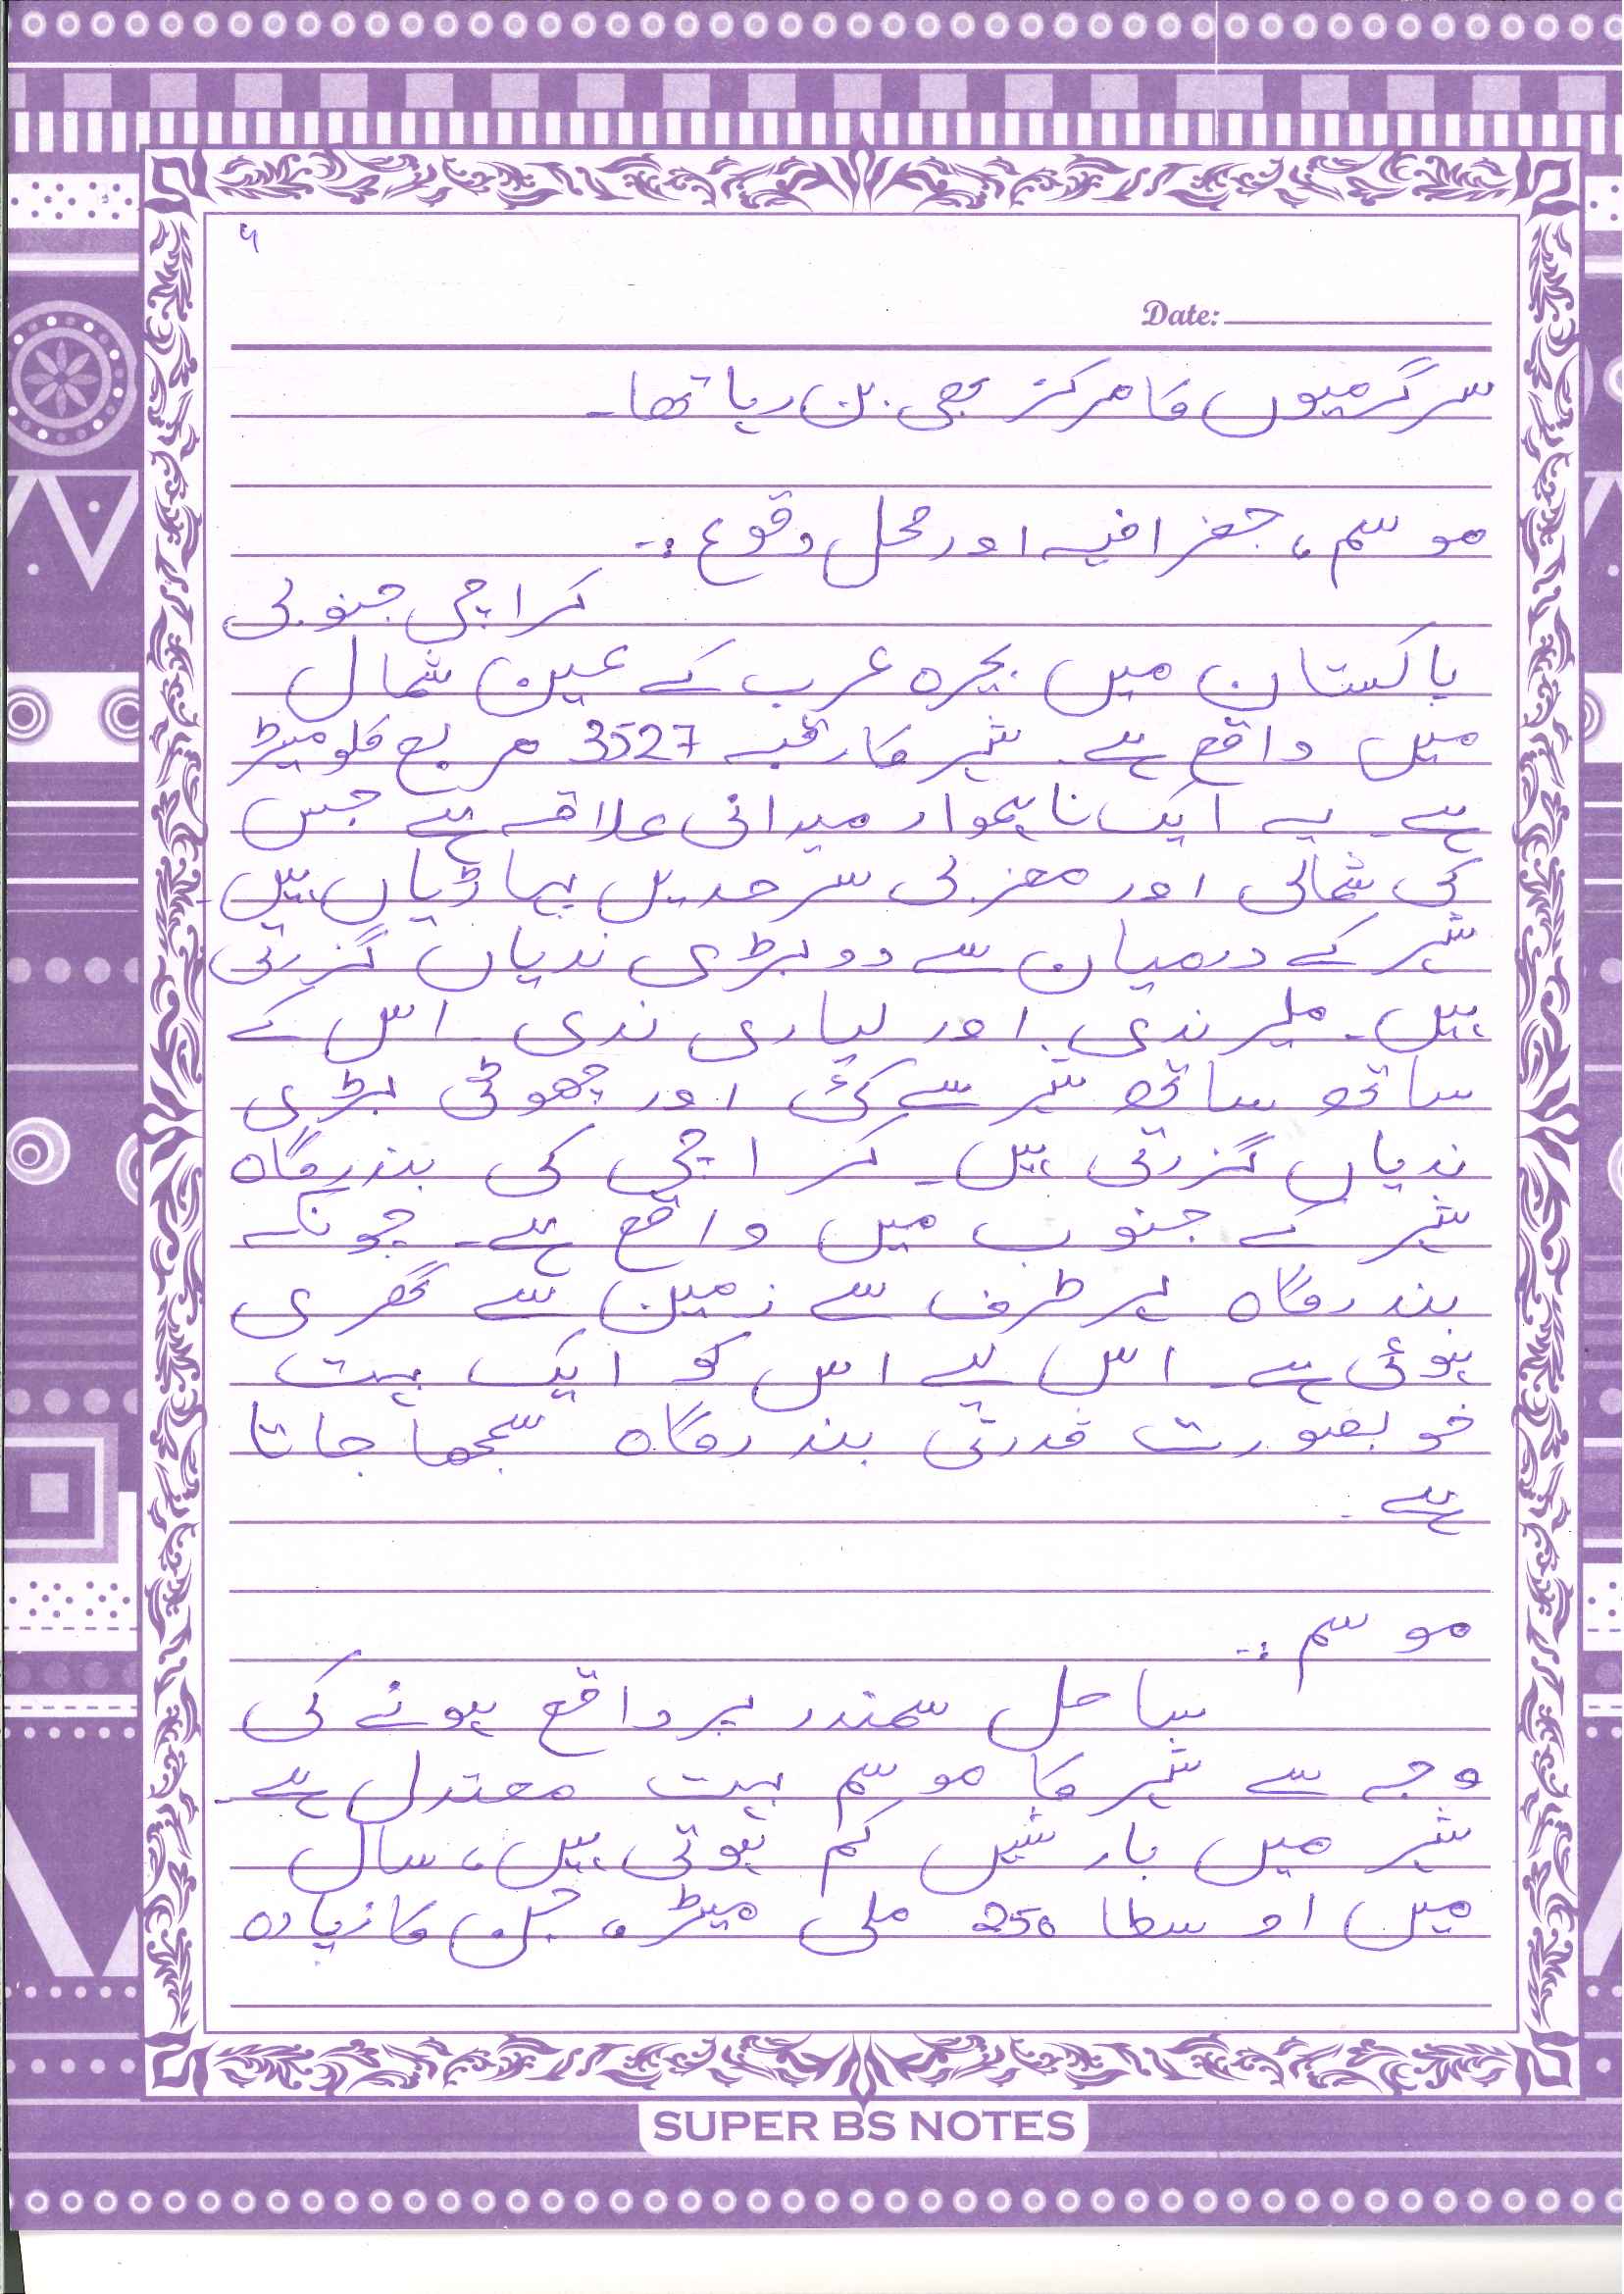 ۹
Date:
سرگرمیوں کا مرکز بھی بن رہا تھا۔
موسم، جغرافیہ اور محل وقوع :-
کراچی جنوبی
پاکستان میں بحیرہ عرب کے عین شمال
میں واقع ہے۔ شہر کا رقبہ 3527 مربع کلومیٹر
ہے۔ یہ ایک ناہموار میدانی علاقہ ہے جس
کی شمالی اور مغربی سرحدیں پہاڑیاں ہیں۔
شہر کے درمیان سے دو بڑی ندیاں گزرتی
ہیں۔ ملیر ندی اور لیاری ندی۔ اس کے
ساتھ ساتھ شہر سے کئی اور چھوٹی بڑی
ندیاں گزرتی ہیں۔ کراچی کی بندرگاہ
شہر کے جنوب میں واقع ہے۔ چونکہ
بندرگاہ ہر طرف سے زمین سے گھری
ہوئی ہے۔ اس لیے اس کو ایک بہت
خوبصورت قدرتی بندرگاہ سمجھا جاتا
ہے۔
موسم :-
ساحل سمندر پر واقع ہونے کی
وجہ سے شہر کا موسم بہت معتدل ہے۔
شہر میں بارشیں کم ہوتی ہیں، سال
میں اوسطا 250 ملی میٹر، جس کا زیادہ
SUPER BS NOTES